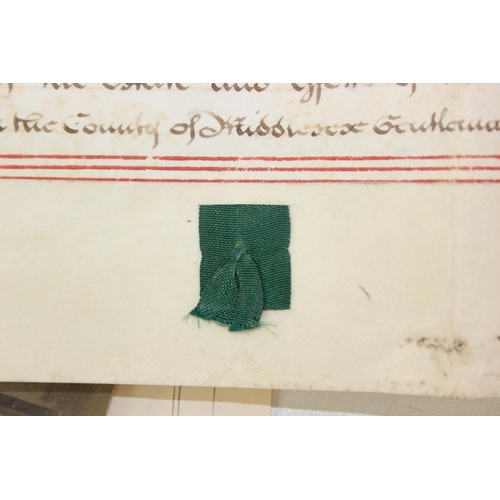 the estate and effects of
the County of Middlesex Gentleman